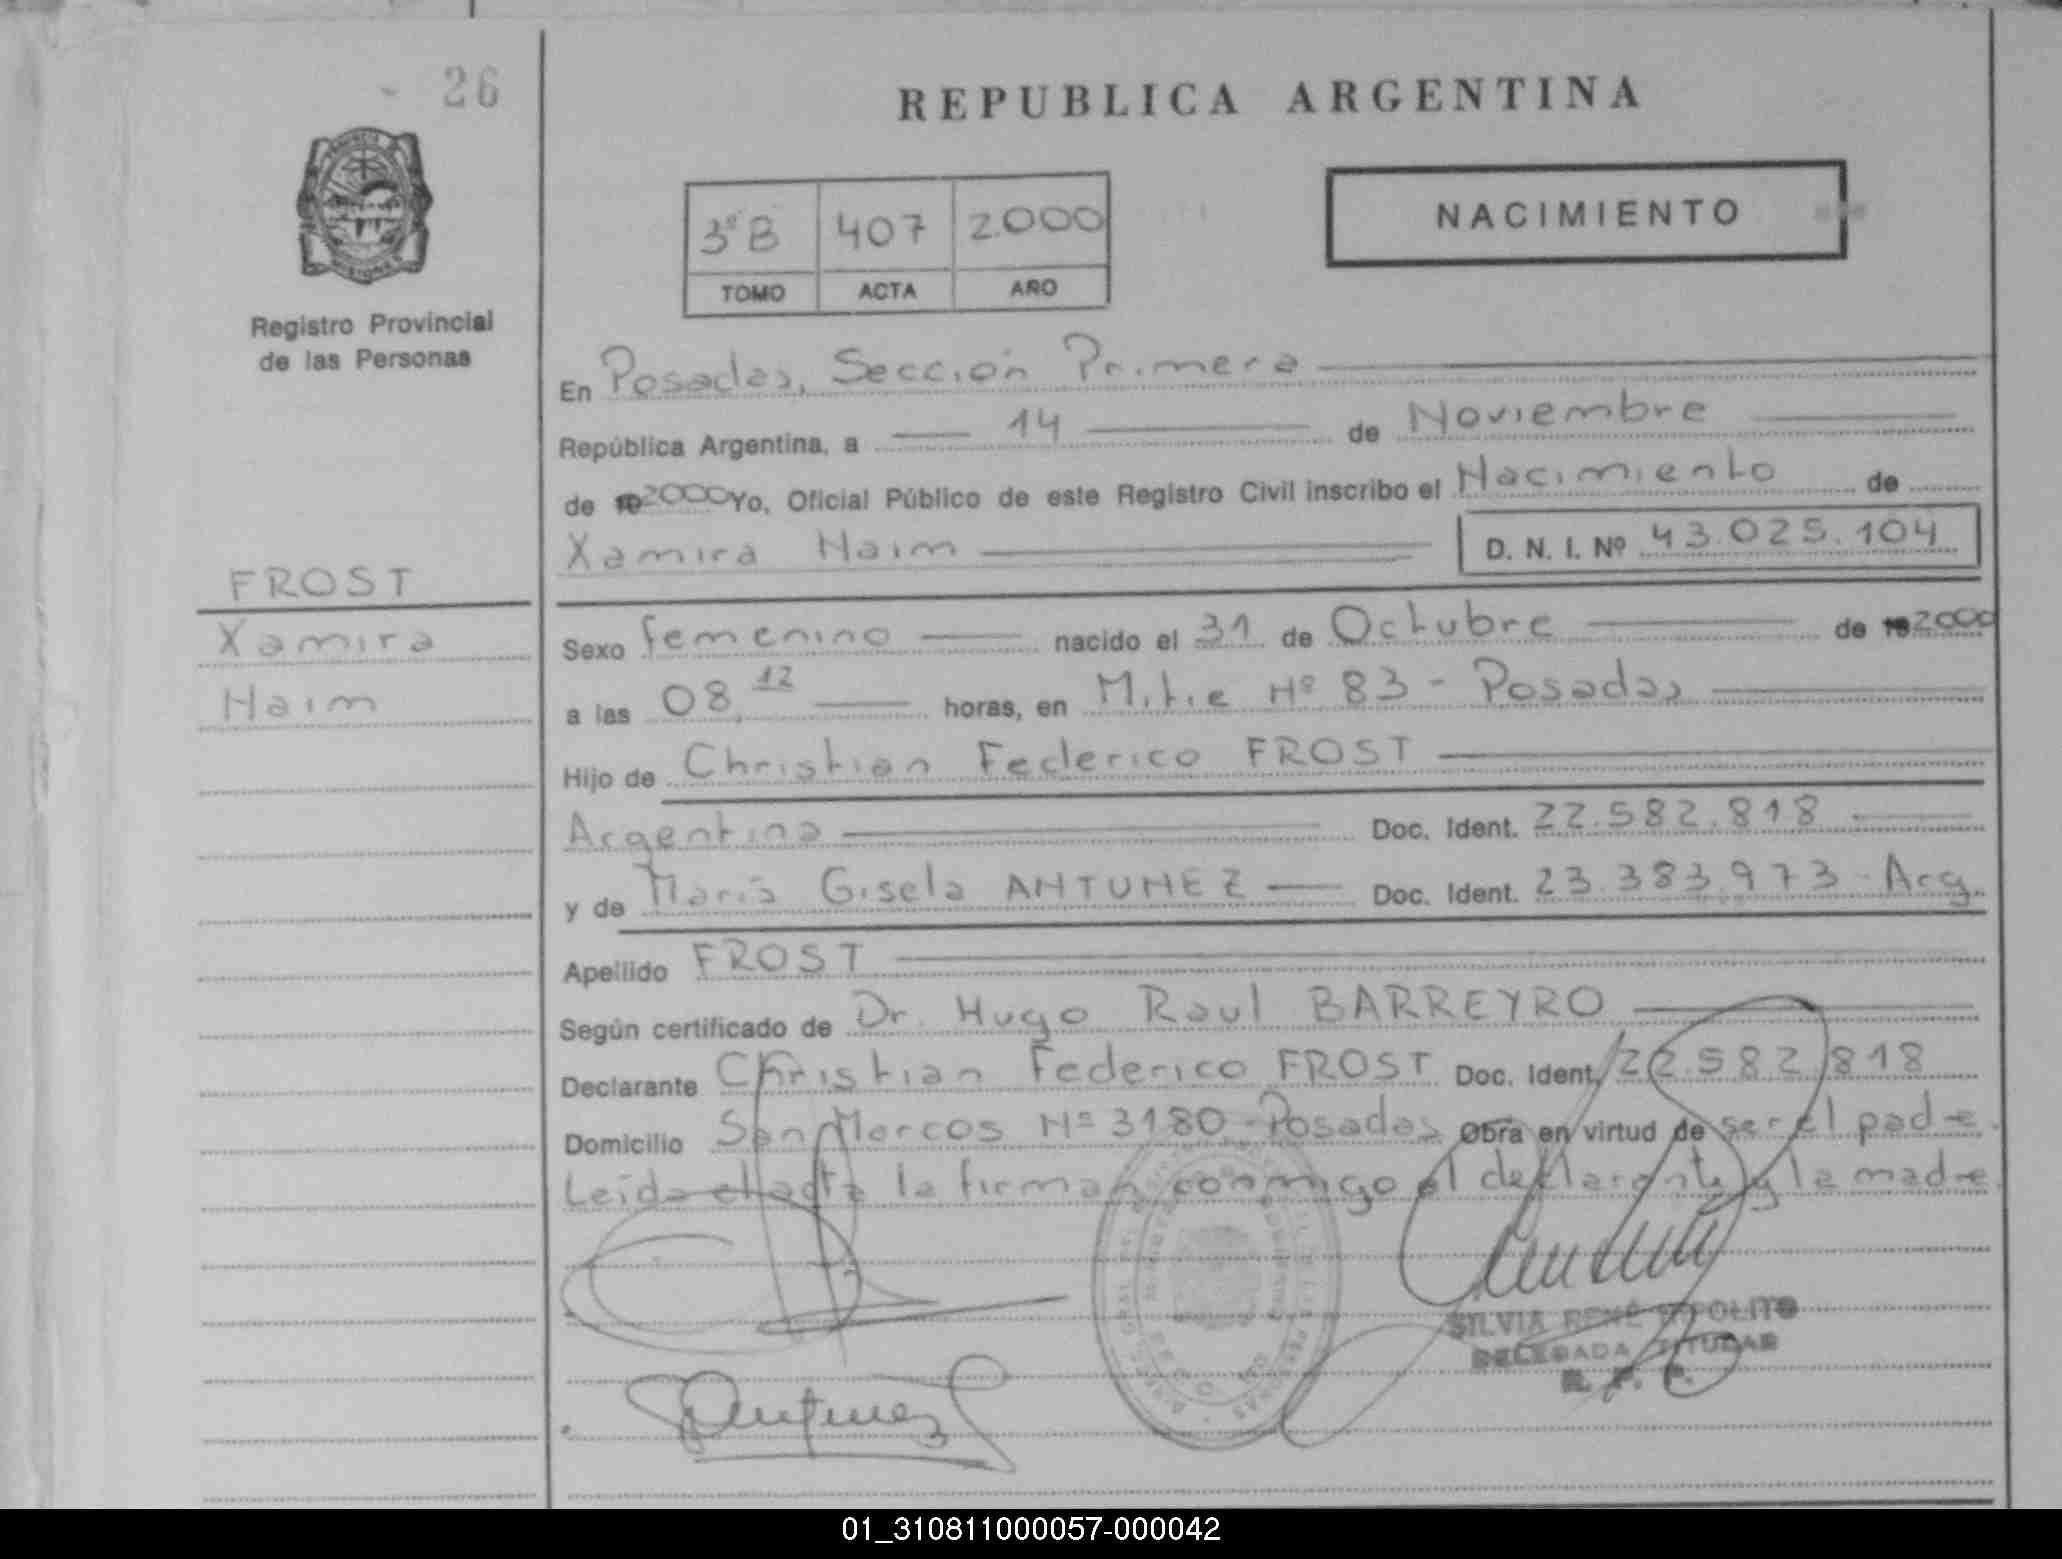 26
REPUBLICA ARGENTINA
3º B 407 2.000
TOMO ACTA AÑO
NACIMIENTO
Registro Provincial
de las Personas
En Posadas, Sección Primera
República Argentina, a 14 de Noviembre
de 2000 Yo, Oficial Público de este Registro Civil inscribo el Nacimiento de
Xamira Naim D. N. I. Nº 43.025.104
FROST
Xamira
Naim
Sexo femenino nacido el 31 de Octubre de 2000
a las 08,12 horas, en Mitre Nº 83 - Posadas
Hijo de Christian Federico FROST
Argentino Doc. Ident. 22.582.818
y de María Gisela ANTUNEZ Doc. Ident. 23.383.973 - Arg.
Apellido FROST
Según certificado de Dr. Hugo Raul BARREYRO
Declarante Christian Federico FROST Doc. Ident. 22.582.818
Domicilio San Marcos Nº 3180 - Posadas Obra en virtud de ser el padre.
Leída el acta la firman conmigo el declarante y la madre.
SILVIA RENÉ HIPOLITO
DELEGADA TITULAR
R. P. P.
01_310811000057-000042